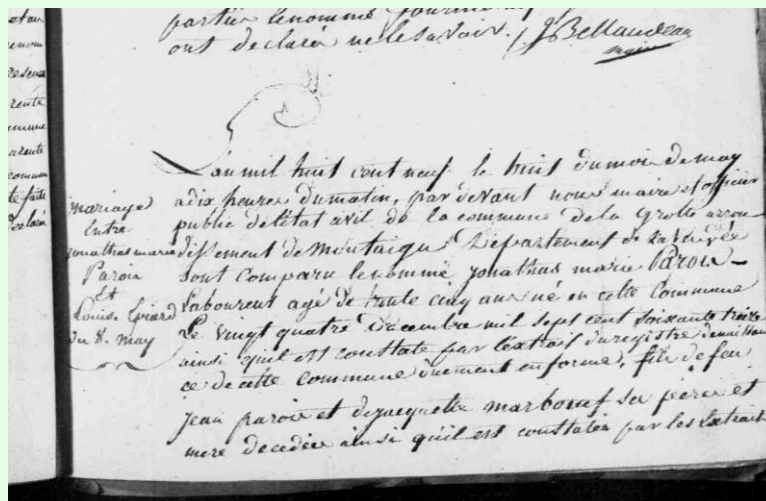 partie le nommé
ont declaré ne le savoir. J Bellaudeau
maire
mariage
Entre
jonathas marie
Paroir
Et
Louise Epiard
du 8. may
L'an mil huit cent neuf le huit du mois de may
a dix heures du matin, par devant nous maire et officier
public de l'état civil de la commune de la Grolle arron
dissement de montaigu Département de la Vendée
sont comparu le nommé jonathas marie Paroir
Laboureur agé de trente cinq ans né en cette Commune
Le vingt quatre Décembre mil sept cent soixante treize
ainsi qu'il est constaté par l'extrait du registre de naissan
ce de cette commune duement en forme, fils de feu
jean paroir et de jacquette marboeuf ses père et
mere décédés ainsi qu'il est constaté par les Extraits